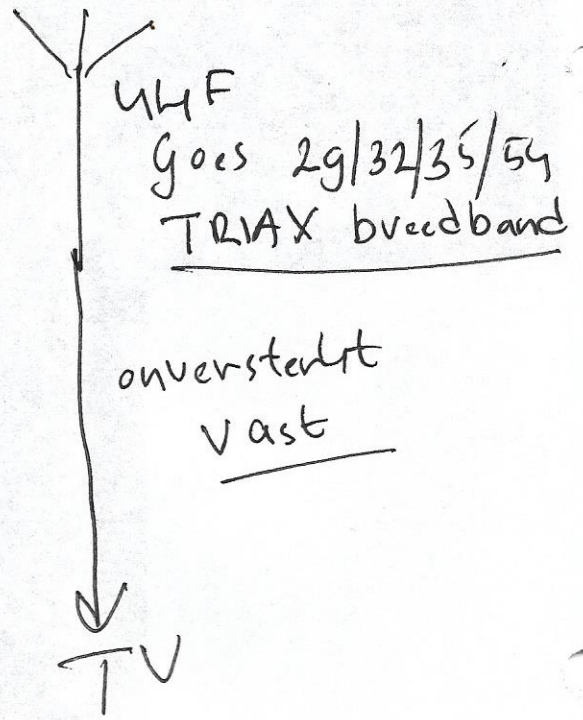 UHF
Goes 29/32/35/54
TRIAX breedband
onversterkt
vast
TV